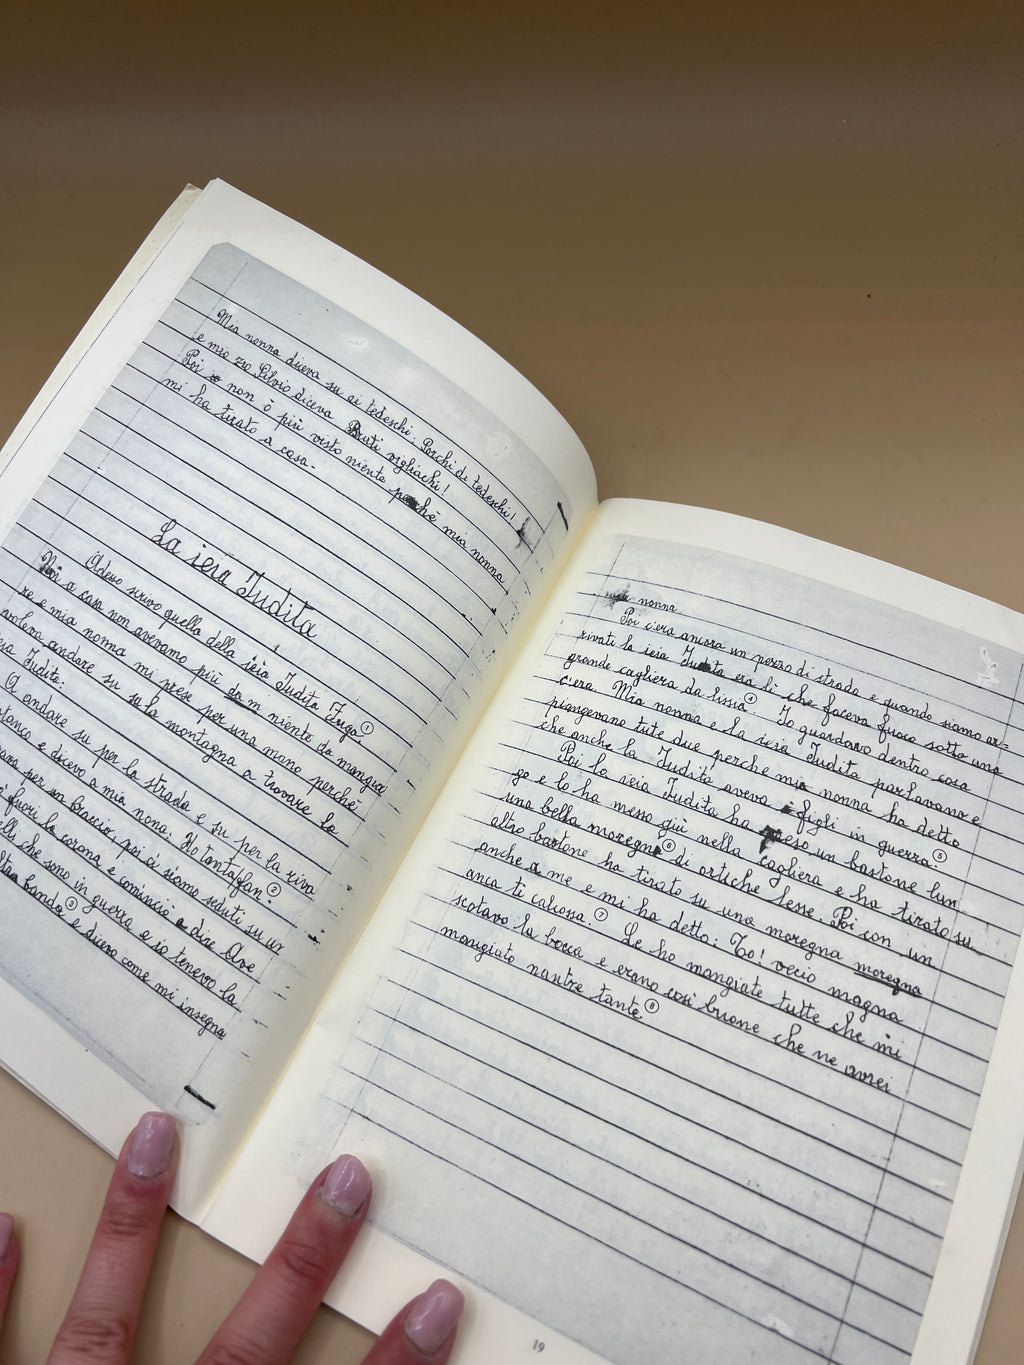 Mia nonna diceva su ai tedeschi: Porchi di tedeschi!
e mio zio Silvio diceva Bruti vigliachi!
Poi io non ò più visto niente perchè mia nonna
mi ha tirato a casa.
La ieia Iudita
Adesso scrivo quella della ieia Iudita Zuga ①
Noi a casa non avevamo più niente da mangia
re e mia nonna mi prese per una mano perchè
voleva andare su su la montagna a trovare la
ieia Iudita:
A andare su per la strada e su per la riva
stanco e dicevo a mia nona: Ho tantaifan ②
per un braccio, poi ci siamo seduti su un
fuori la corona e cominciò a dire Ave
che sono in guerra e io tenevo la
banda ③ e dicevo come mi insegna
mia nonna
Poi c'era ancora un pezzo di strada e quando siamo ar-
rivati la ieia Iudita era lì che faceva fuoco sotto una
grande cagliera da lissia ④ Io guardavo dentro cosa
c'era. Mia nonna e la ieia Iudita parlavano e
piangevano tute due perche mia nonna ha detto
che anche la Iudita aveva i figli in guerra: ⑤
Poi la ieia Iudita ha preso un bastone lun
go e lo ha messo giù nella cagliera e ha tirato su
una bella moregna ⑥ di ortiche lesse. Poi con un
altro bastone ha tirato su una moregna moregna
anche a me e mi ha detto: To! vecio magna
anca ti calcossa. ⑦ Le ho mangiate tutte che mi
scotavo la bocca e erano così buone che ne avrei
mangiato nantre tante ⑧
19